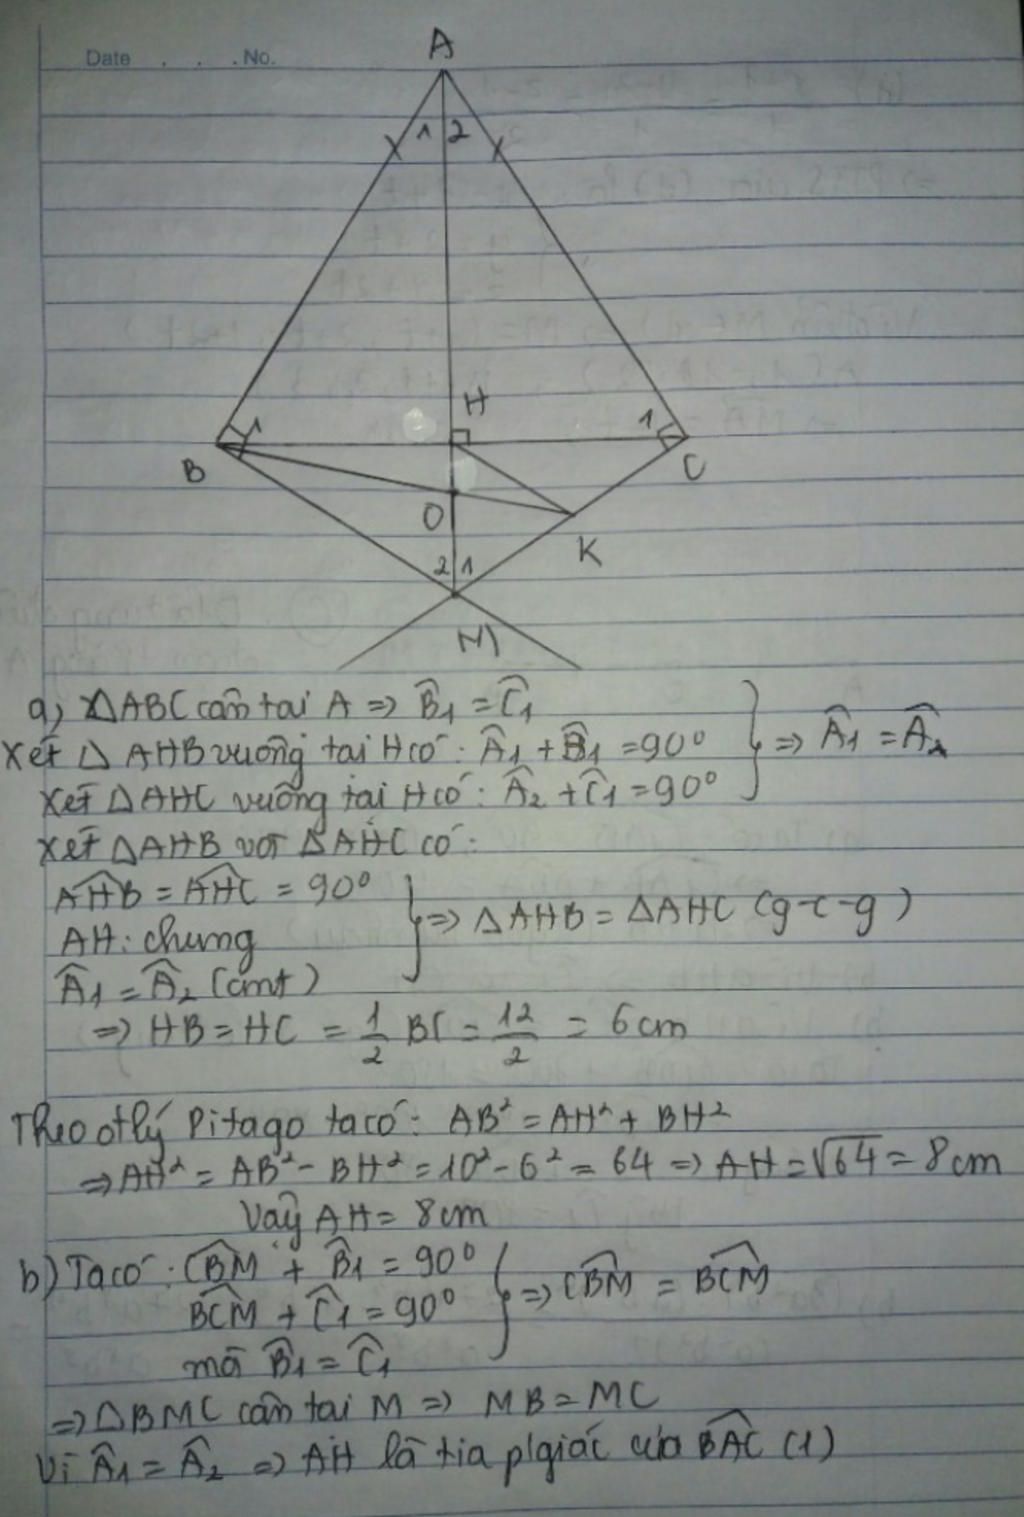 Date . . . No.
A
1 2
H
1 1
B C
O
K
2 1
M
a) △ABC cân tại A => B̂1 = Ĉ1
Xét △ AHB vuông tại H có: Â1 + B̂1 = 90°
Xét △AHC vuông tại H có: Â2 + Ĉ1 = 90°
=> Â1 = Â2
Xét △AHB với △AHC có:
AHB = AHC = 90°
AH: chung
Â1 = Â2 (cmt)
=> △AHB = △AHC (g-c-g)
=> HB = HC = 1/2 BC = 12/2 = 6cm
Theo đlý Pitago ta có: AB² = AH² + BH²
=> AH² = AB² - BH² = 10² - 6² = 64 => AH = √64 = 8cm
Vậy AH = 8cm
b) Ta có: CBM + B̂1 = 90°
BCM + Ĉ1 = 90°
mà B̂1 = Ĉ1
=> CBM = BCM
=> △BMC cân tại M => MB = MC
Vì Â1 = Â2 => AH là tia p/giác của BAC (1)